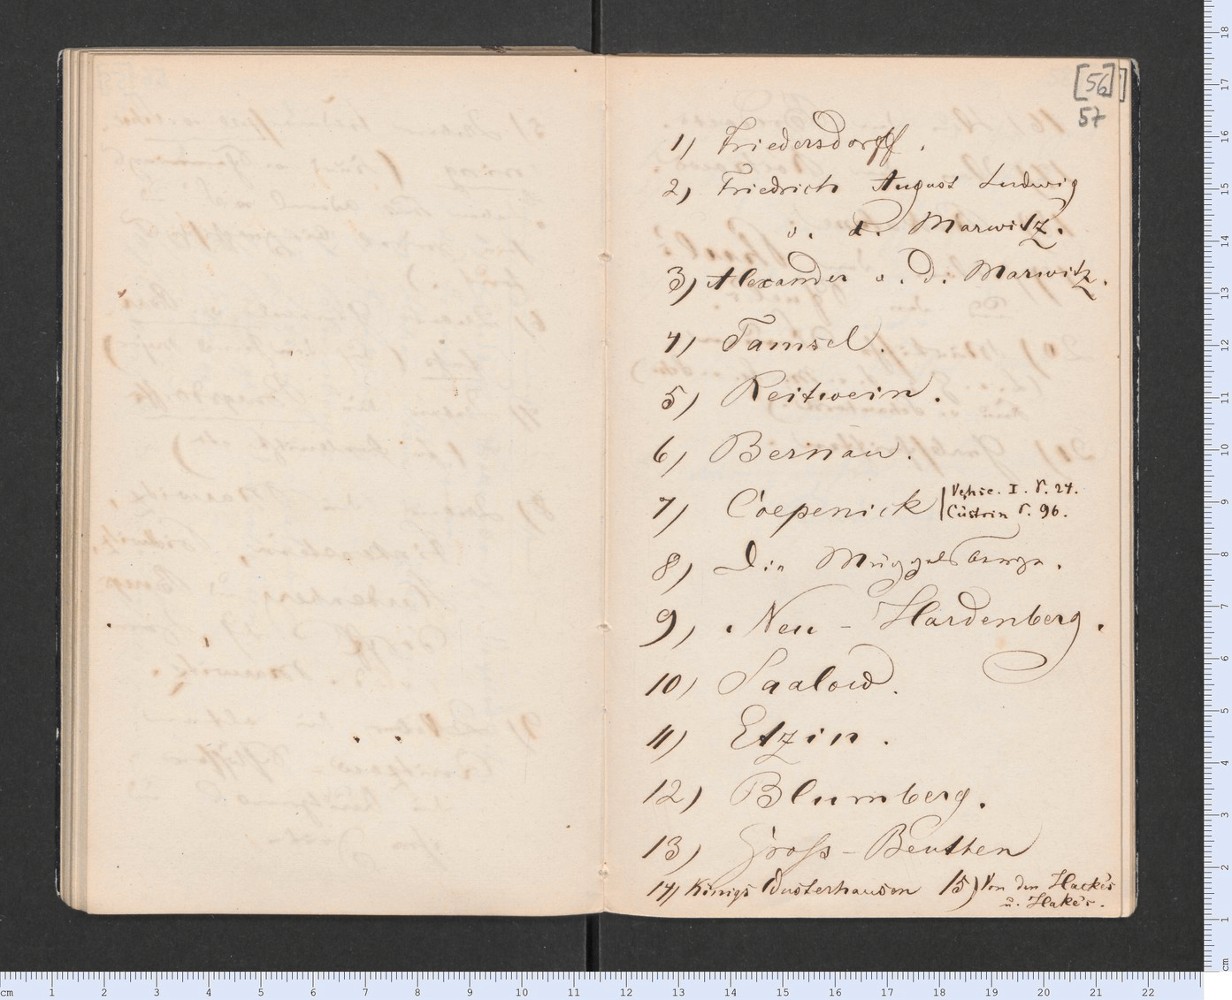 [56]
57
1) Friedersdorff.
2) Friedrich August Ludwig
v. d. Marwitz.
3) Alexander v. d. Marwitz.
4) Tamsel.
5) Reitwein.
6) Bernau.
7) Cöepenick Vehse. I. S. 24.
Cüstrin S. 96.
8) Die Müggelsberge.
9) Neu-Hardenberg.
10) Saalow.
11) Etzin.
12) Blumberg.
13) Gross-Beuthen
14) Königs Wusterhausen 15) Von den Hacke's
u. Hake's.